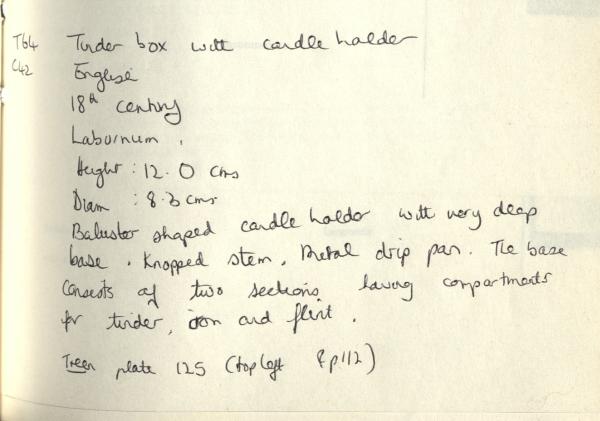 T64 Tinder box with candle holder
C42 English
18th century
Laburnum.
Height: 12.0 cms
Diam : 8.3 cms
Baluster shaped candle holder with very deep
base. Knopped stem. Metal drip pan. The base
consists of two sections having compartments
for tinder, iron and flint.
Treen plate 125 (top left & p112)